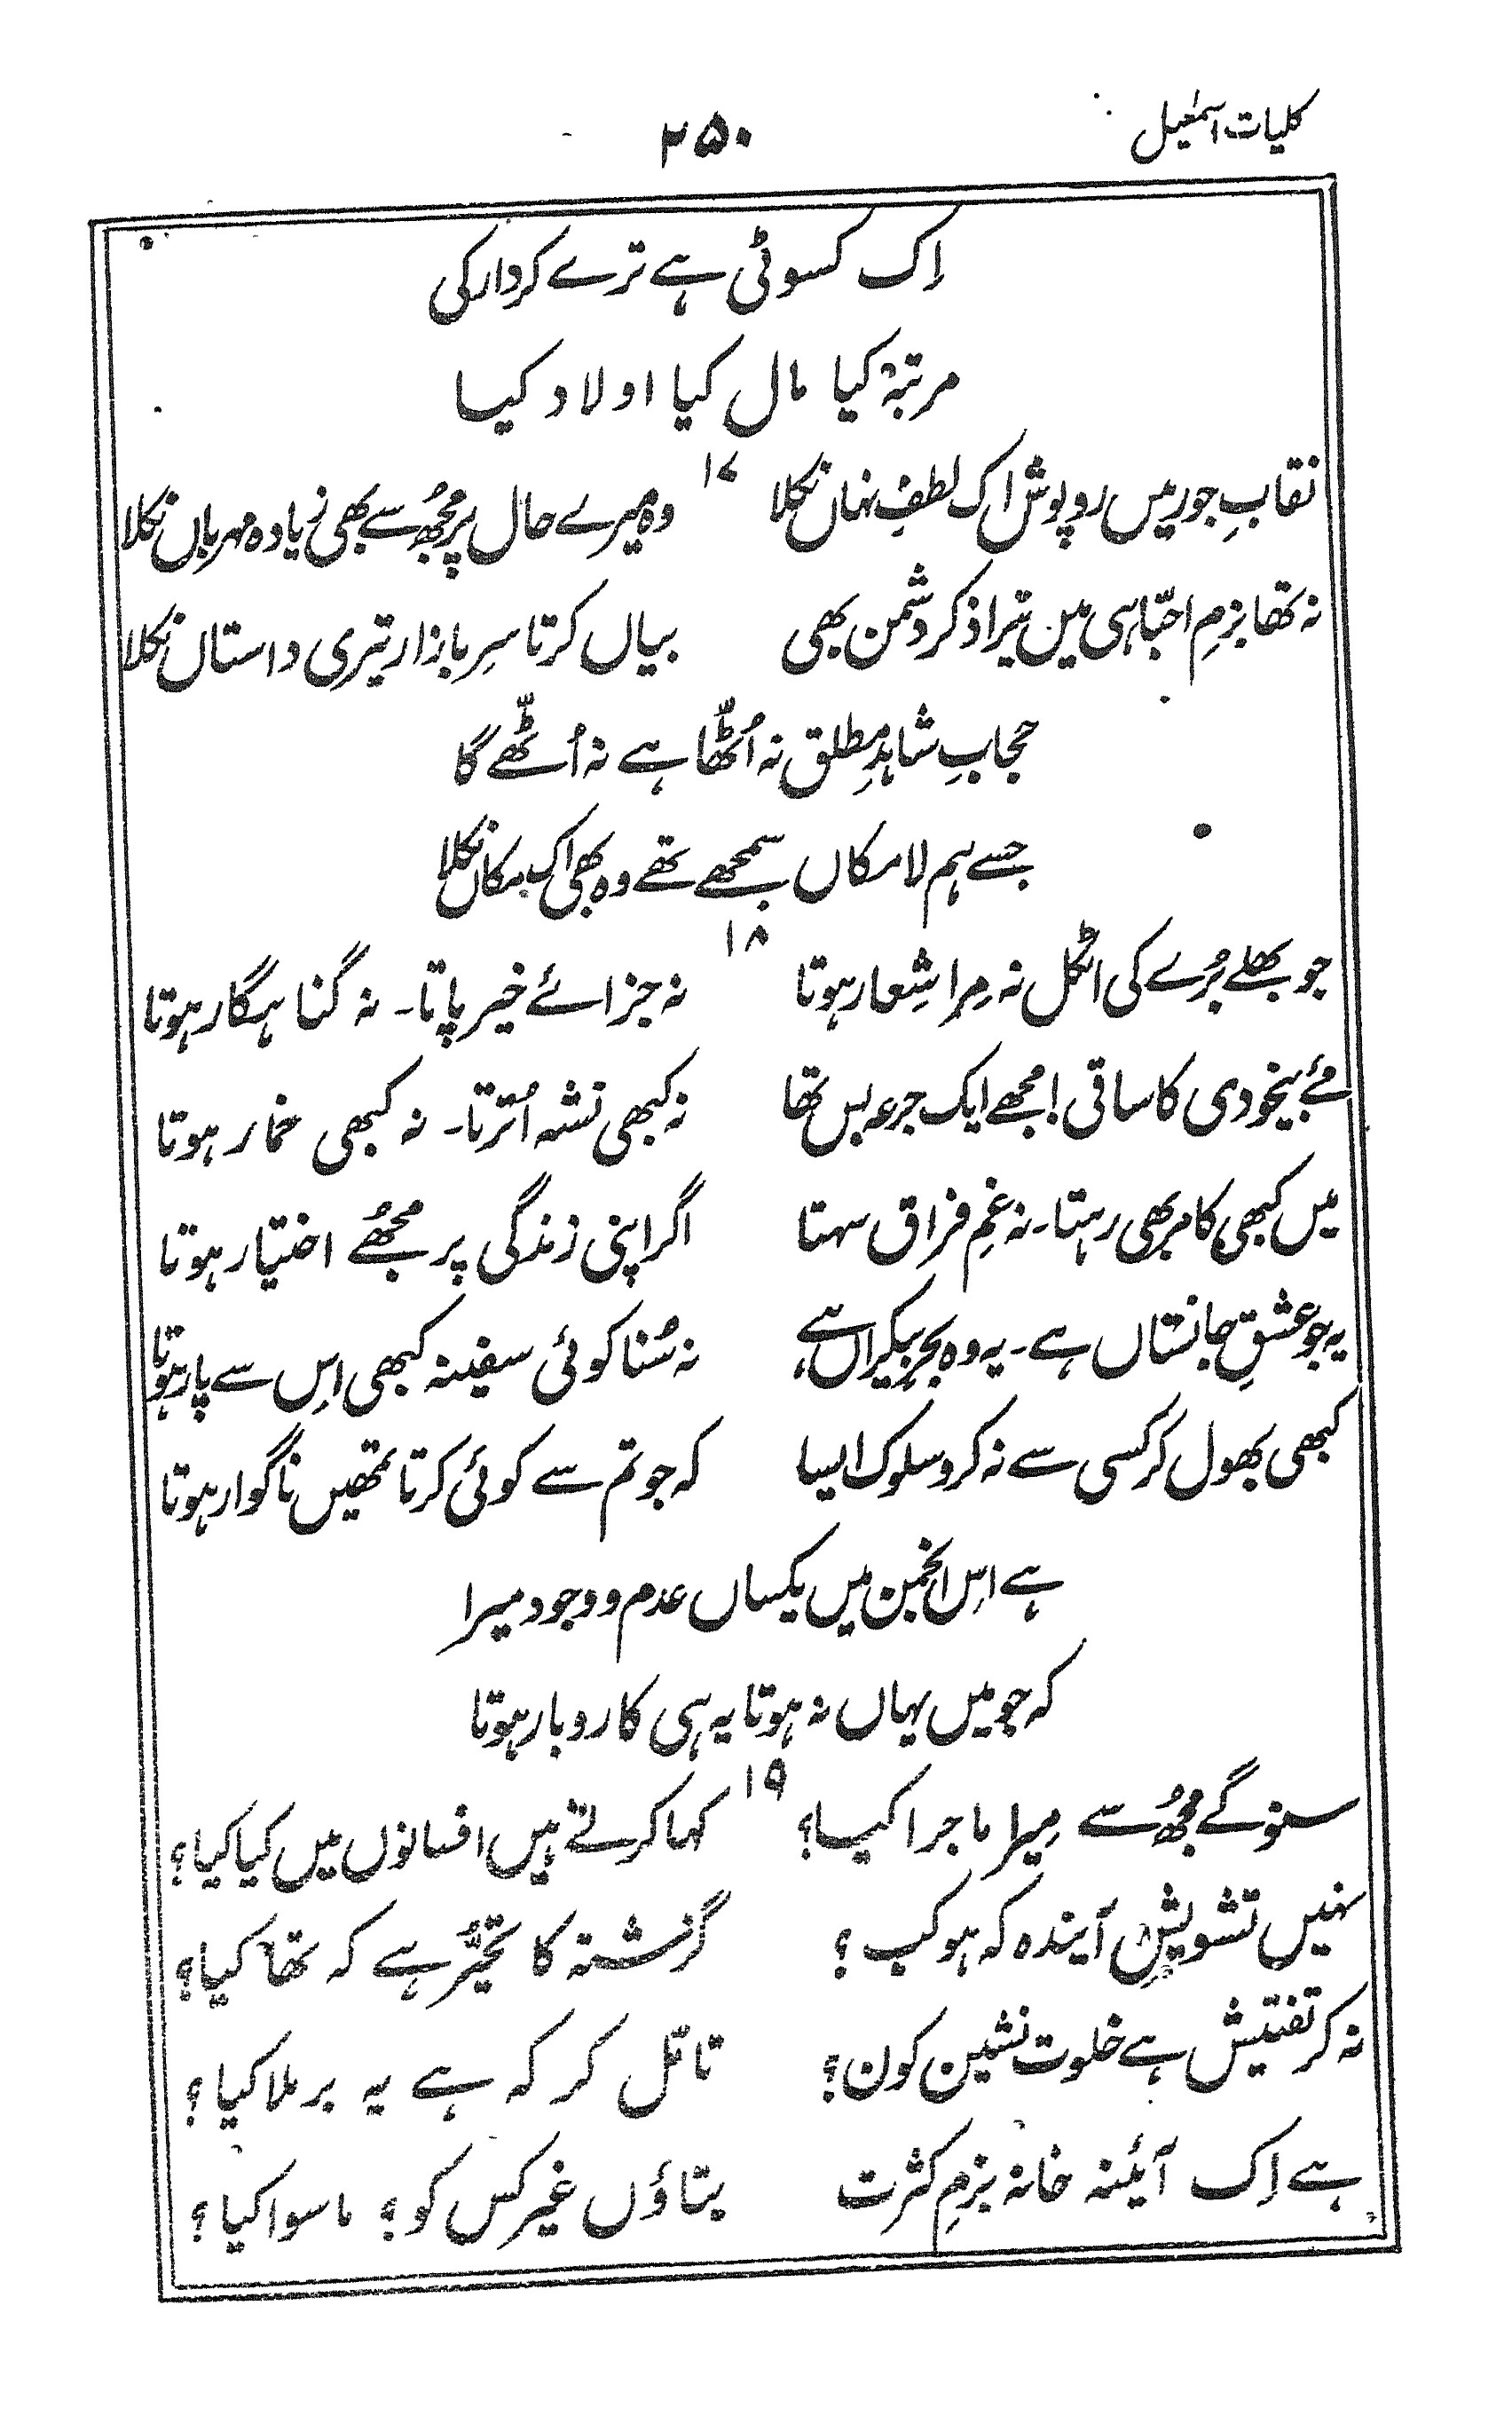 کلیات اسمٰعیل
۲۵۰
اِک کسوٹی ہے ترے کردار کی
مرتبہ کیا مال کیا اولاد کیا
۱۷
نقابِ جور میں روپوش اک لطفِ نہاں نکلا وہ میرے حال پر مجُھ سے بھی زیادہ مہرباں نکلا
نہ تھا بزمِ احبّا ہی میں تیرا ذکر دشمن بھی بیاں کرتا سرِ بازار تیری داستاں نکلا
حجابِ شاہدِ مطلق نہ اُٹّھا ہے نہ اُٹّھے گا
جسے ہم لامکاں سمجھے تھے وہ بھی اک مکاں نکلا
۱۸
جو بھلے بُرے کی اٹکل نہ مِرا شِعار ہوتا نہ جزائے خیر پاتا۔ نہ گناہگار ہوتا
مئے بیخودی کا ساقی! مجھے ایک جرعہ بس تھا نہ کبھی نشہ اُترتا۔ نہ کبھی خمار ہوتا
میں کبھی کا مر بھی رہتا۔ نہ غمِ فراق سہتا اگر اپنی زندگی پر مجُھے اختیار ہوتا
یہ جو عشقِ جانستاں ہے۔ یہ وہ بحرِ بیکراں ہے نہ سُنا کوئی سفینہ کبھی اِس سے پار ہوتا
کبھی بھول کر کسی سے نہ کرو سلوک ایسا کہ جو تم سے کوئی کرتا تمھیں ناگوار ہوتا
ہے اِس انجمن میں یکساں عدم و وجود میرا
کہ جو میں یہاں نہ ہوتا یہ ہی کاروبار ہوتا
۱۹
سنو گے مجُھ سے مِیرا ماجرا کیا؟ کہا کرتے ہیں افسانوں میں کیا کیا؟
نہیں تشویشِ آیندہ کہ ہو کب؟ گزشتہ کا تحیُّر ہے کہ تھا کیا؟
نہ کر تفتیش ہے خلوت نشین کون؟ تامّل کر کہ ہے یہ برملا کیا؟
ہے اِک آئینہ خانہ بزمِ کثرت بتاؤں غیر کس کو؟ ماسوا کیا؟